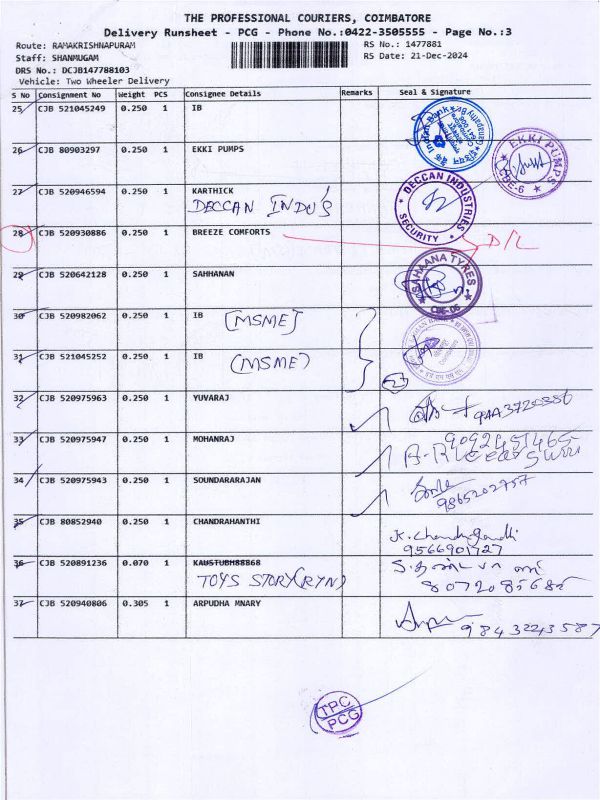 THE PROFESSIONAL COURIERS, COIMBATORE
Delivery Runsheet - PCG - Phone No.:0422-3505555 - Page No.:3
Route: RAMAKRISHNAPURAM
RS No.: 1477881
Staff: SHANMUGAM
RS Date: 21-Dec-2024
DRS No.: DCJB147788103
Vehicle: Two Wheeler Delivery
S No Consignment No Weight PCS Consignee Details Remarks Seal & Signature
25 CJB 521045249 0.250 1 IB
Indian Bank
26 CJB 80903297 0.250 1 EKKI PUMPS
EKKI PUMPS CBE-6
27 CJB 520946594 0.250 1 KARTHICK
DECCAN INDU'S
DECCAN INDUSTRIES SECURITY
28 CJB 520930886 0.250 1 BREEZE COMFORTS D/L
29 CJB 520642128 0.250 1 SAHHANAN
SAHAANA TYRES CBE-06
30 CJB 520982062 0.250 1 IB [MSME]
31 CJB 521045252 0.250 1 IB (MSME)
27
32 CJB 520975963 0.250 1 YUVARAJ
33 CJB 520975947 0.250 1 MOHANRAJ 9092451465
34 CJB 520975943 0.250 1 SOUNDARARAJAN
9865202757
35 CJB 80852940 0.250 1 CHANDRAHANTHI K. Chandragandhi
9566901727
36 CJB 520891236 0.070 1 KAUSTUBH88868
TOYS STORY (RYN)
37 CJB 520940806 0.305 1 ARPUDHA MNARY
9843223587
TPC
PCG